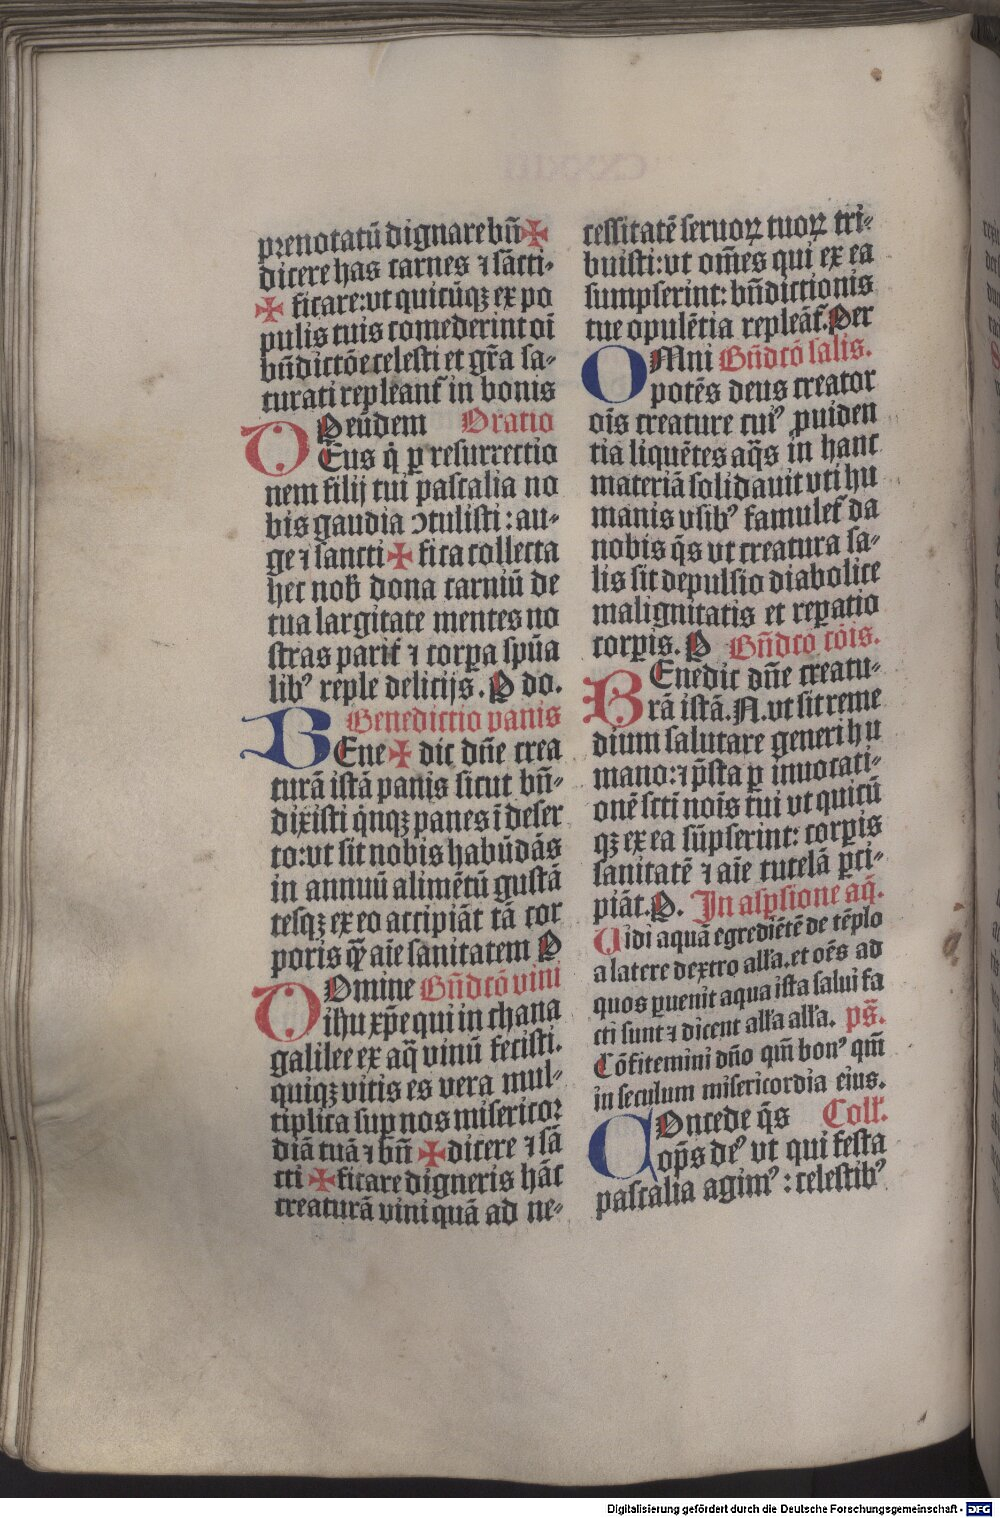 prenotatū dignare bn̄ ✠
dicere has carnes ⁊ sācti-
✠ ficare: vt quicūqꝫ ex po
pulis tuis comederint oī
bn̄dictōe celesti et gr̄a sa-
turati repleant᷑ in bonis
Peūdem Oratio
DEus q̇ ꝑ resurrectio
nem filij tui pascalia no
bis gaudia ↄtulisti: au-
ge ⁊ sancti ✠ fica collecta
hec nob̄ dona carniū de
tua largitate mentes no
stras parit᷑ ⁊ corꝑa spūa
libꝰ reple delicijs. P do.
Benedictio panis
BEne ✠ dic dn̄e crea
turā istā panis sicut bn̄-
dixisti q̇nqꝫ panes ī deser
to: vt sit nobis habūdās
in annuū alimētū gustā
tesqꝫ ex eo accipiāt tā cor
poris qꝫ̄ aīe sanitatem P
DOmine Bn̄dcō vini
ihu xp̄e qui in chana
galilee ex aq̄ vinū fecisti.
quiqꝫ vitis es vera mul-
tiplica sup nos misericor
diā tuā ⁊ bn̄ ✠ dicere ⁊ sā
cti ✠ ficare digneris hāc
creaturā vini quā ad ne-
cessitatē seruoꝝ tuoꝝ tri-
buisti: vt om̄es qui ex ea
sumpserint: bn̄dictionis
tue opulētia repleāt᷑. Per
OMni Bn̄dcō salis.
potēs deus creator
oīs creature tuiꝰ ꝓuiden
tia liquētes aq̄s in hanc
materiā solidauit vti hu
manis vsibꝰ famulet᷑ da
nobis q̄s vt creatura sa-
lis sit depulsio diabolice
malignitatis et reꝑatio
corꝑis. P Bn̄dcō cōis.
BEnedic dn̄e creatu-
rā istā. N. vt sit reme
dium salutare generi hu
mano: ⁊ p̄sta ꝑ inuocati-
onē scti noīs tui vt quicū
qꝫ ex ea sūpserint: corꝑis
sanitatē ⁊ aīe tutelā ꝑci-
piāt. P. In asꝑsione aq̄.
Uidi aquā egrediētē de tēplo
a latere dextro alľa. et oēs ad
quos ꝑuenit aqua ista salui fa
cti sunt ⁊ dicent alľa alľa. ps̄.
Cōfitemini dn̄o qm̄ bonꝰ qm̄
in seculum misericordia eius.
COncede q̄s Coll᷑.
op̄s deꝰ vt qui festa
pascalia agimꝰ: celestibꝰ
Digitalisierung gefördert durch die Deutsche Forschungsgemeinschaft - DFG